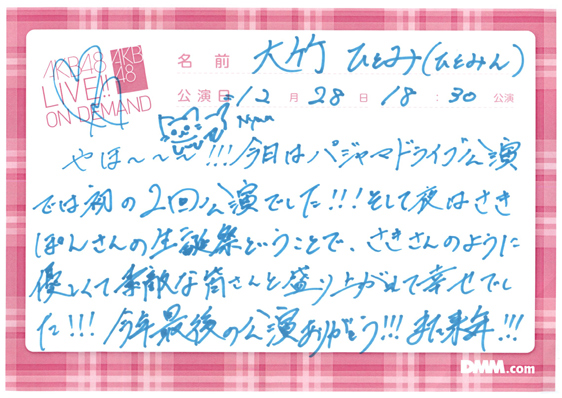 AKB48
LIVE!!
ON DEMAND
AKB
48
名前 大竹 ひとみ(ひとみん)
公演日 12月28日 18:30 公演
Nyan
やほ〜〜〜!!!今日はパジャマドライブ公演
では初の2回公演でした!!!そして夜はさき
ぽんさんの生誕祭ということで、さきさんのように
優しくて素敵な皆さんと盛り上がれて幸せでし
た!!!今年最後の公演ありがとう!!!また来年!!!
DMM.com